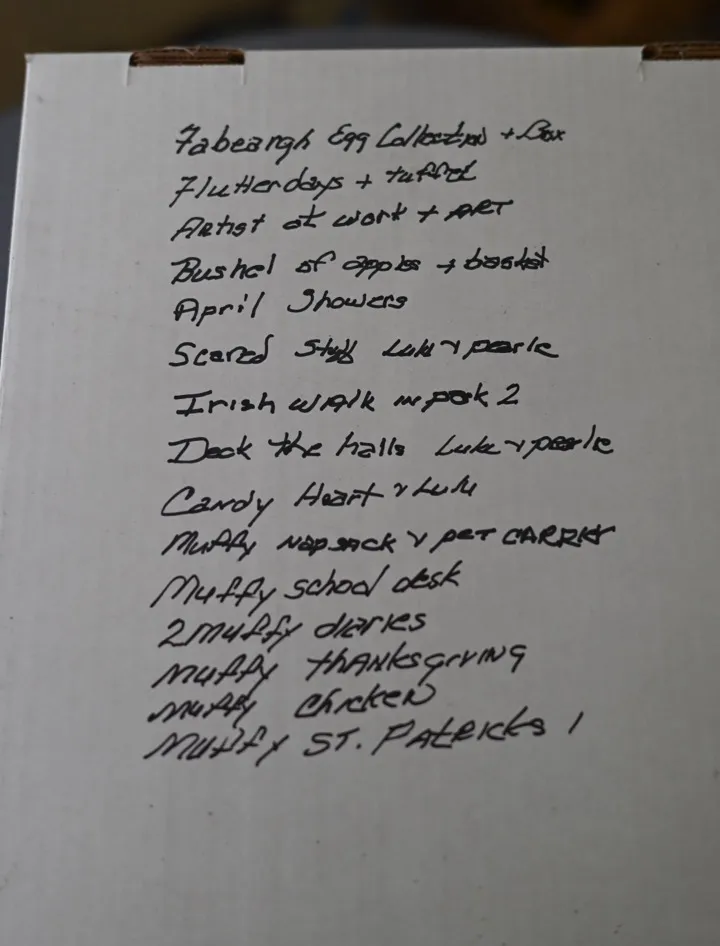 Fabeargh Egg Collection + Box
Flutterdays + tuffet
Artist at work + ART
Bushel of apples + basket
April Showers
Scared Stuff Lulu & pearle
Irish WAlk in park 2
Deck the halls Lulu & pearle
Candy Heart & Lulu
Muffy NApSACK & peT CARRIER
Muffy school desk
2 Muffy diaries
Muffy thANksgiviNg
Muffy Chicken
Muffy ST. PAtRicks 1